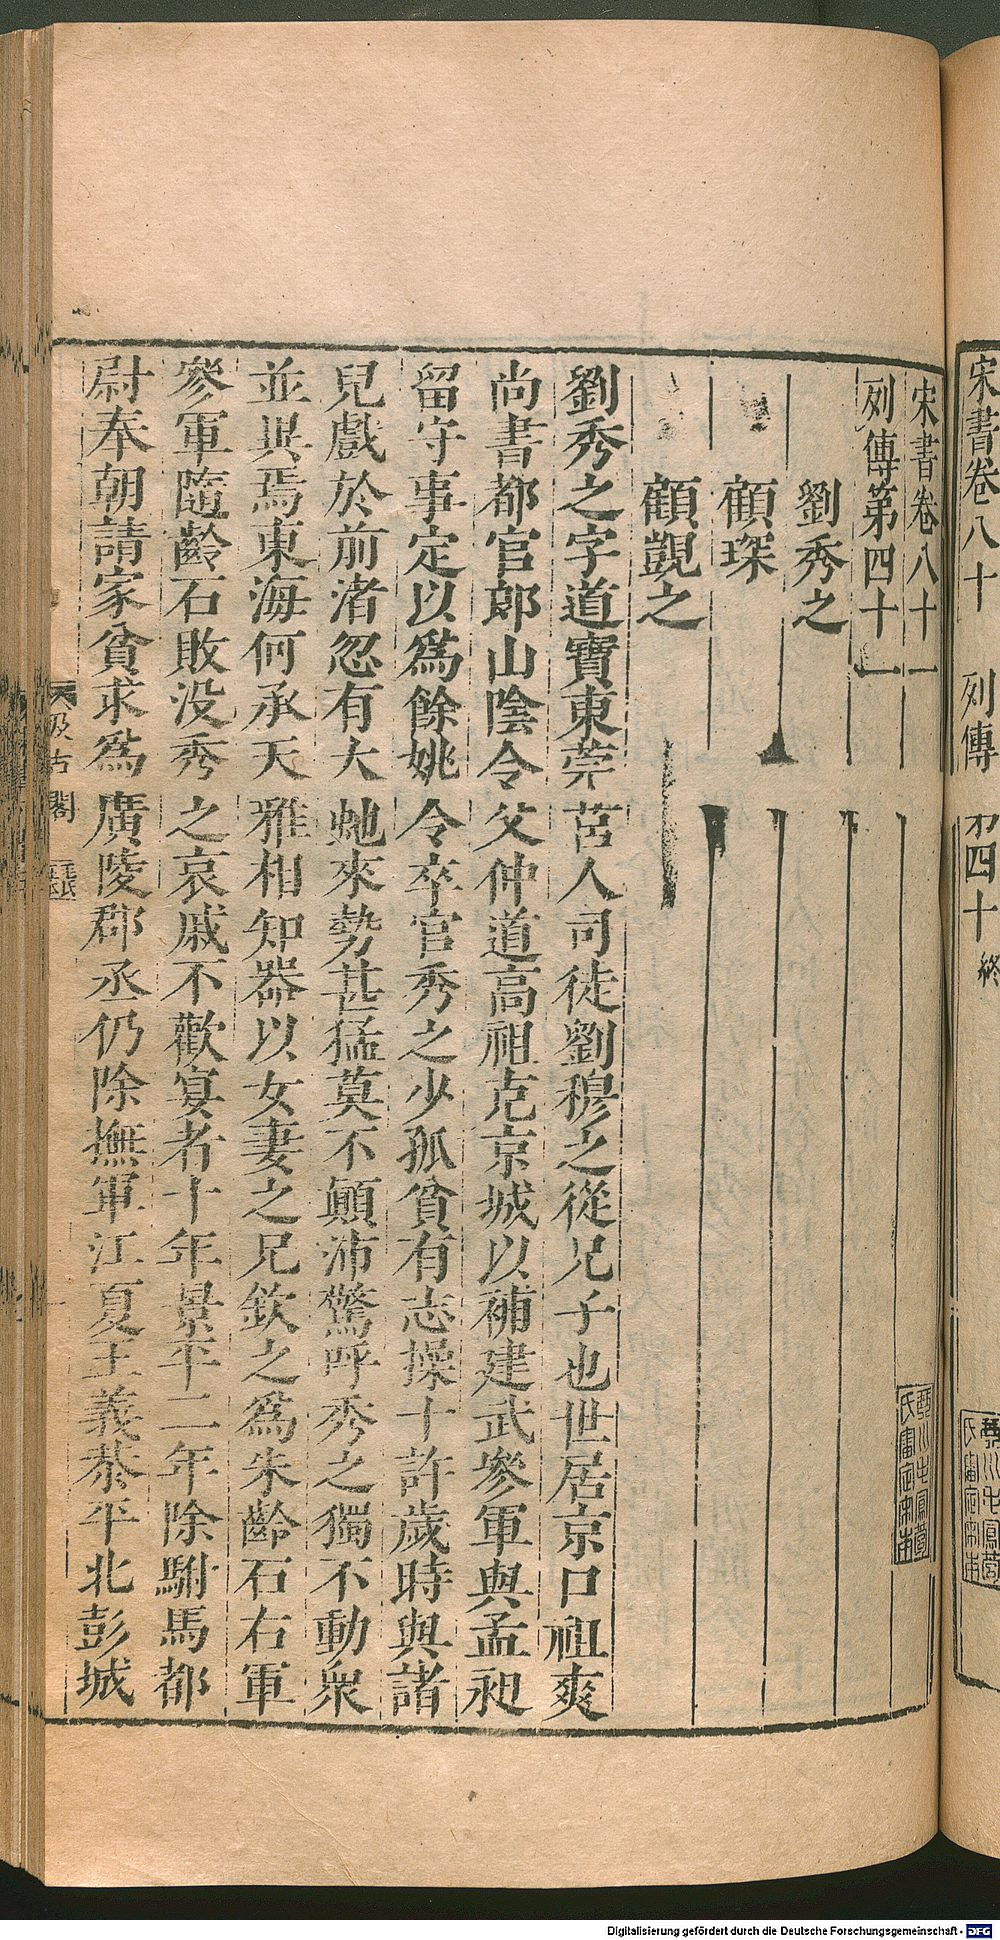 宋書卷八十 列傳㐧四十 終
宋書卷八十一
列傳第四十一
劉秀之
顧琛
顧覬之
劉秀之字道寶東莞莒人司徒劉穆之從兄子也世居京口祖爽
尚書都官郎山陰令父仲道高祖克京城以補建武參軍與孟昶
留守事定以爲餘姚令卒官秀之少孤貧有志操十許歲時與諸
兒戲於前渚忽有大虵來勢甚猛莫不顚沛驚呼秀之獨不動衆
並異焉東海何承天雅相知器以女妻之兄欽之爲朱齡石右軍
參軍隨齡石敗没秀之哀戚不歡宴者十年景平二年除駙馬都
尉奉朝請家貧求爲廣陵郡丞仍除撫軍江夏王義恭平北彭城
汲古閣
毛氏
Digitalisierung gefördert durch die Deutsche Forschungsgemeinschaft - DFG